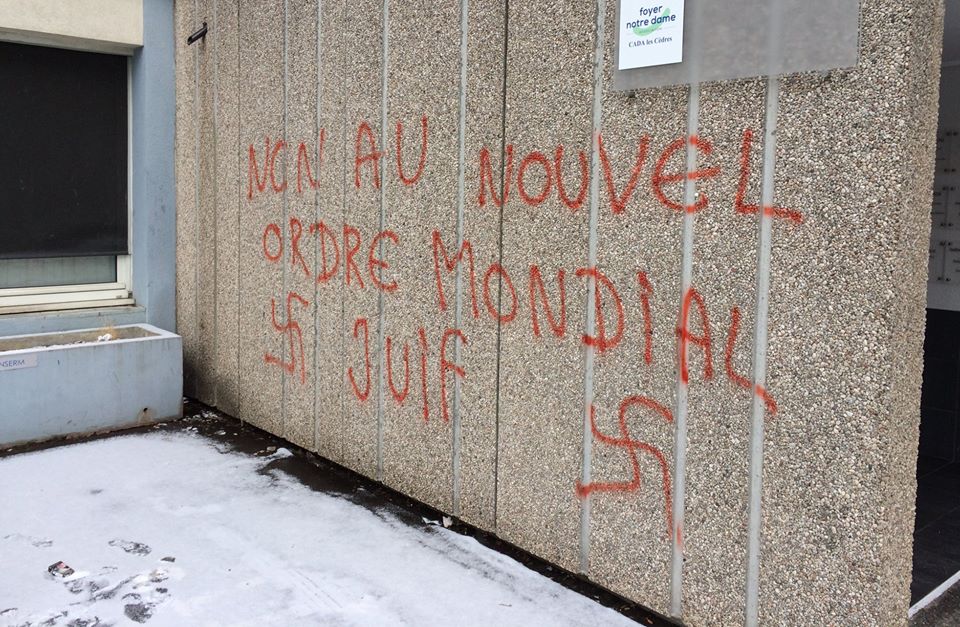 foyer
notre dame
CADA les Cèdres
NON AU NOUVEL
ORDRE MONDIAL
JUIF
INSERM